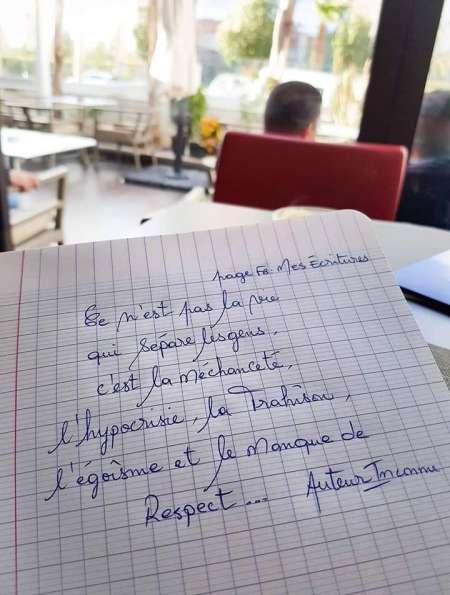 page FB. Mes Écritures
Ce n'est pas la vie
qui sépare les gens,
c'est la méchanceté,
l'hypocrisie, la Trahison,
l'égoïsme et le manque de
Respect... Auteur Inconnu